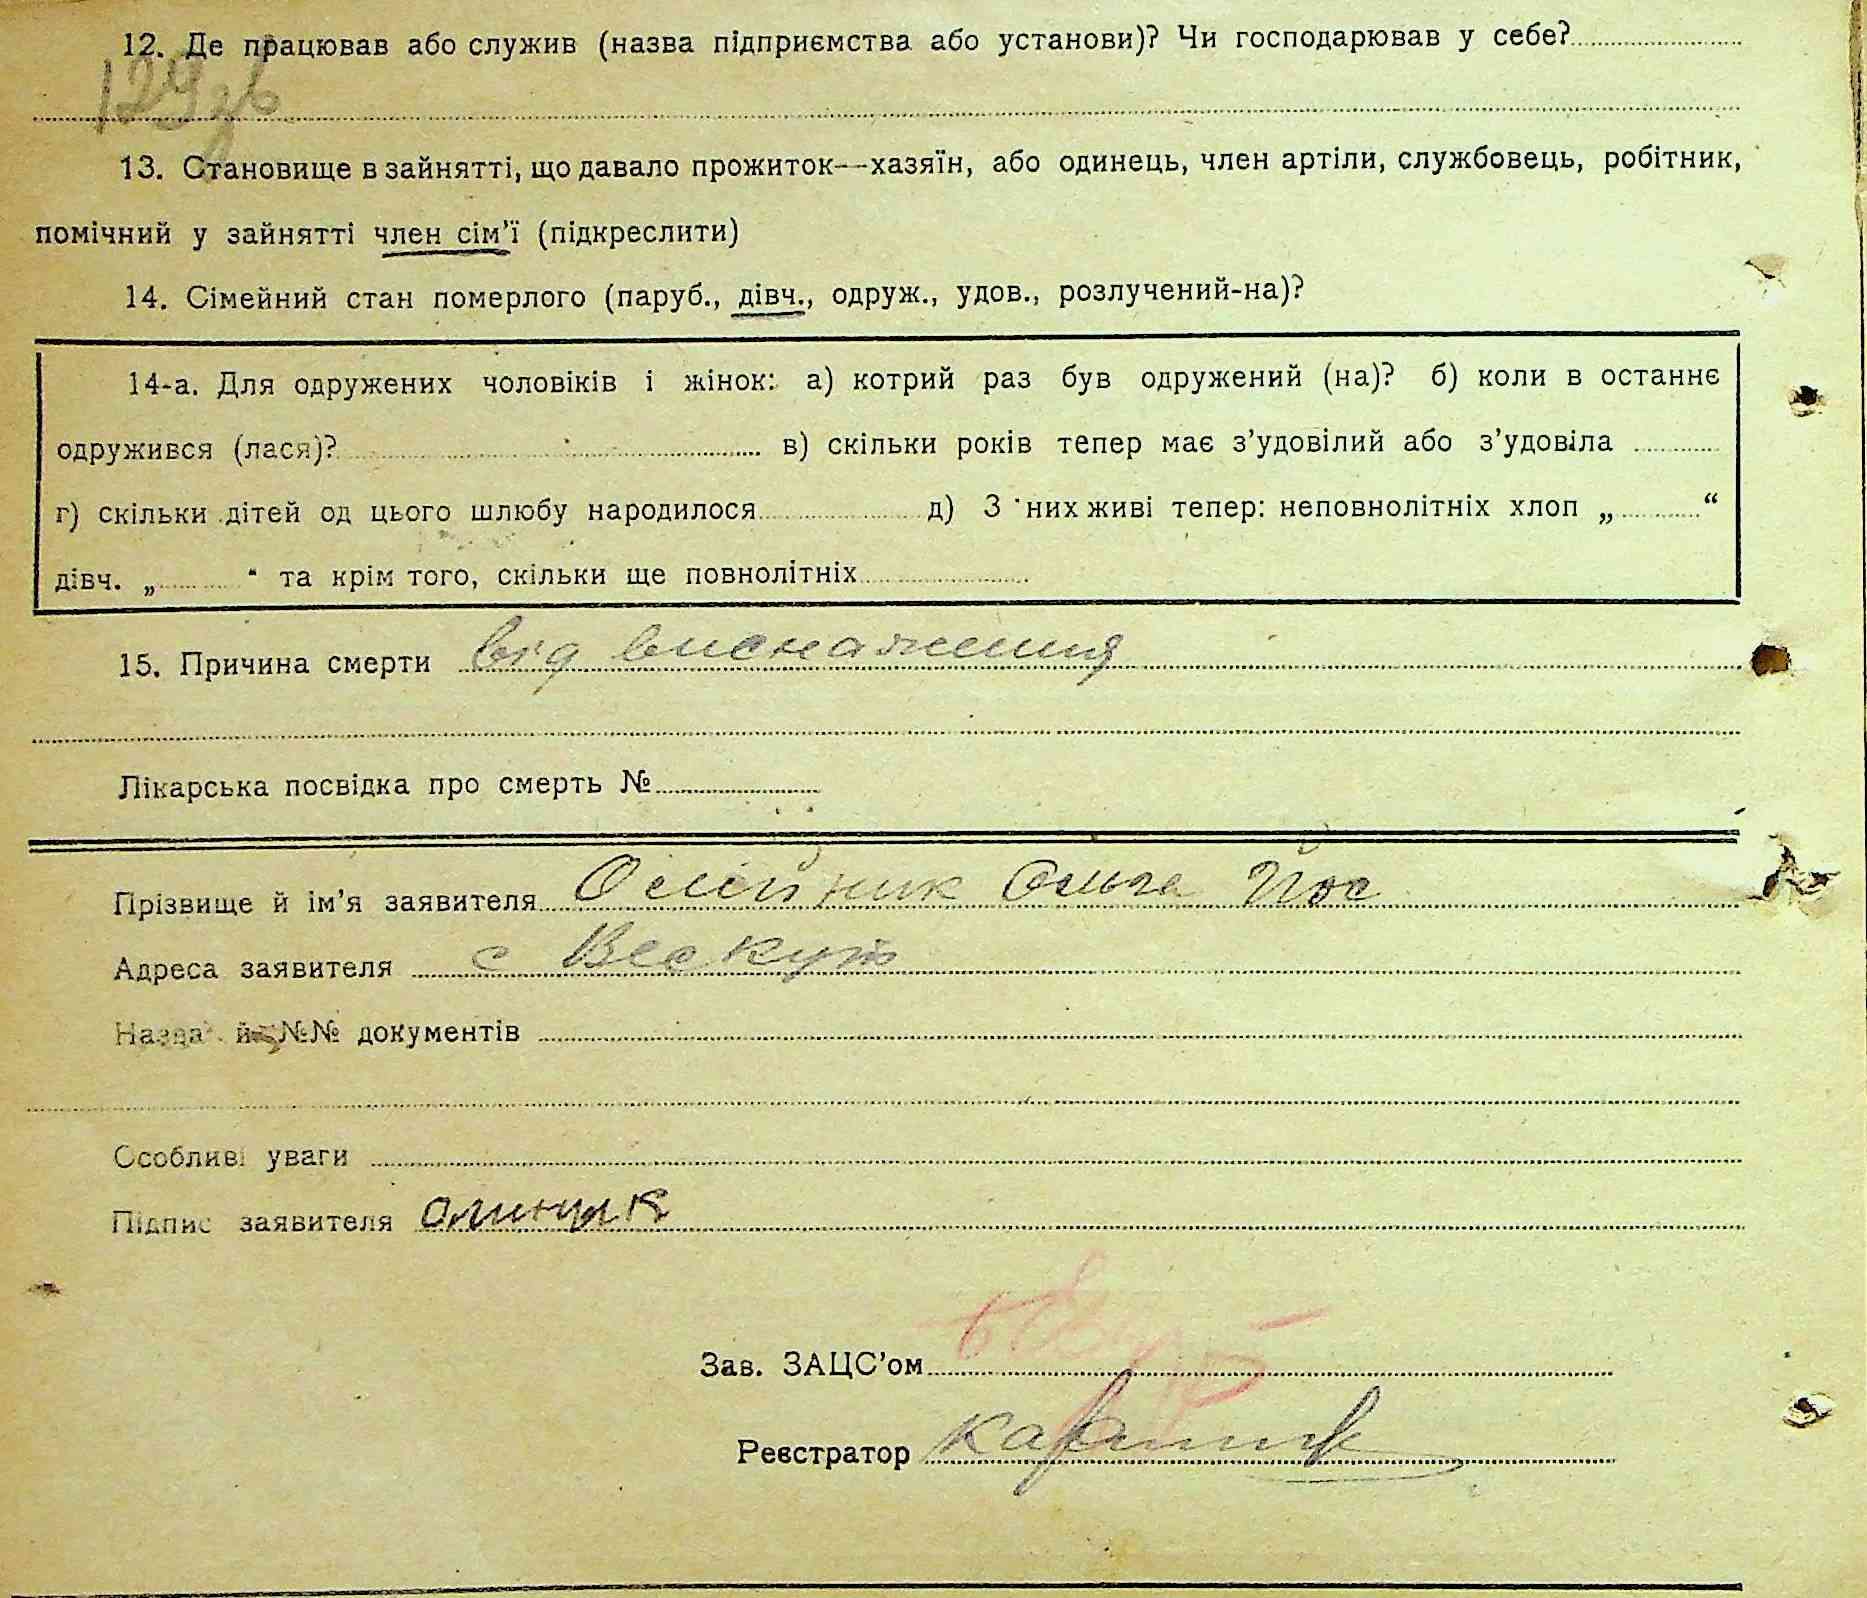 12. Де працював або служив (назва підприємства або установи)? Чи господарював у себе?
129зв
13. Становище в зайнятті, що давало прожиток—хазяїн, або одинець, член артіли, службовець, робітник,
помічний у зайнятті член сім'ї (підкреслити)
14. Сімейний стан померлого (паруб., дівч., одруж., удов., розлучений-на)?
14-а. Для одружених чоловіків і жінок: а) котрий раз був одружений (на)? б) коли в останнє
одружився (лася)? в) скільки років тепер має з'удовілий або з'удовіла
г) скільки дітей од цього шлюбу народилося д) З них живі тепер: неповнолітніх хлоп „ “
дівч. „ “ та крім того, скільки ще повнолітніх
15. Причина смерти від виснаження
Лікарська посвідка про смерть №
Прізвище й ім'я заявителя Олійник Ольга Йос
Адреса заявителя с Вескут
Назва й №№ документів
Особливі уваги
Підпис заявителя
Зав. ЗАЦС'ом
Реєстратор